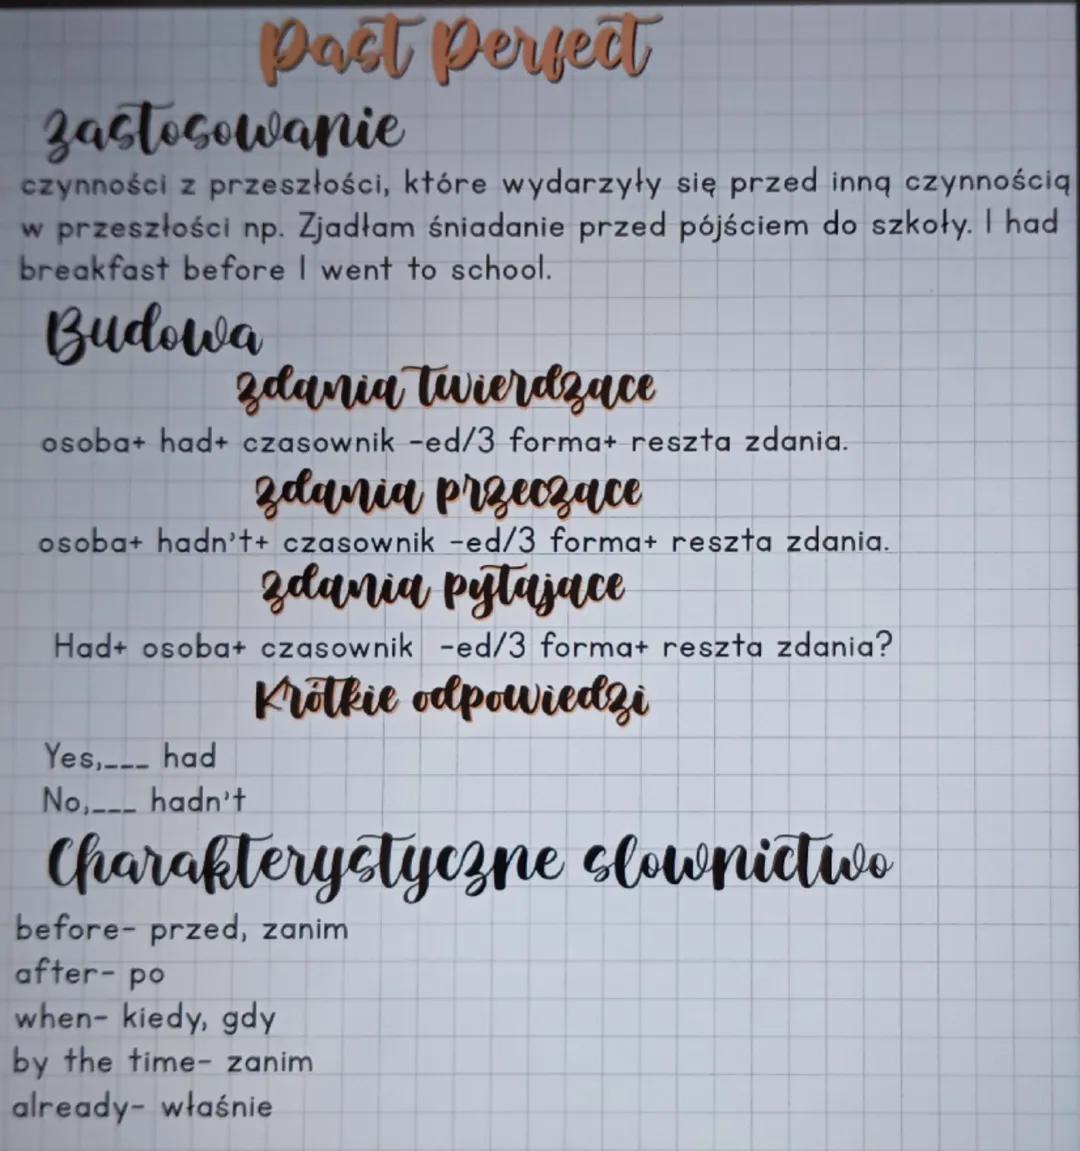 Past Perfect
zastosowanie
czynności z przeszłości, które wydarzyły się przed inną czynnością
w przeszłości np. Zjadłam śniadanie przed pójściem do szkoły. I had
breakfast before I went to school.
Budowa
zdania twierdzące
osoba+ had+ czasownik -ed/3 forma+ reszta zdania.
zdania przeczące
osoba+ hadn't+ czasownik -ed/3 forma+ reszta zdania.
zdania pytające
Had+ osoba+ czasownik -ed/3 forma+ reszta zdania?
Krótkie odpowiedzi
Yes,___ had
No,___ hadn't
Charakterystyczne słownictwo
before- przed, zanim
after- po
when- kiedy, gdy
by the time- zanim
already- właśnie